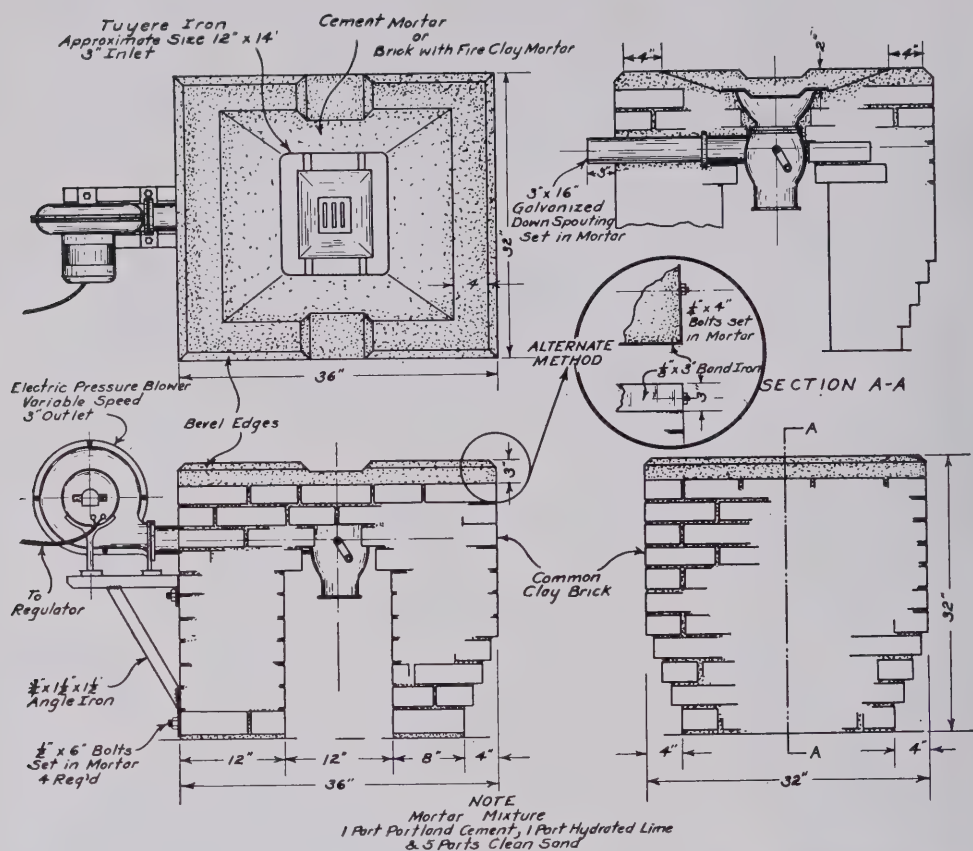 Tuyere Iron
Approximate Size 12" x 14'
3" Inlet
Cement Mortar
or
Brick with Fire Clay Mortar
4"
2"
4"
3"
3" x 16"
Galvanized
Down Spouting
Set in Mortar
32"
4"
36"
ALTERNATE
METHOD
4"
Bolts set
in Mortar
x 3" Band Iron
3"
SECTION A-A
Electric Pressure Blower
Variable Speed
3" Outlet
Bevel Edges
3"
A
To
Regulator
Common
Clay Brick
32"
x 1½" x 1½"
Angle Iron
½" x 6" Bolts
Set in Mortar
4 Req'd
12"
12"
8"
4"
36"
4"
A
4"
32"
NOTE
Mortar Mixture
1 Part Portland Cement, 1 Part Hydrated Lime
& 5 Parts Clean Sand